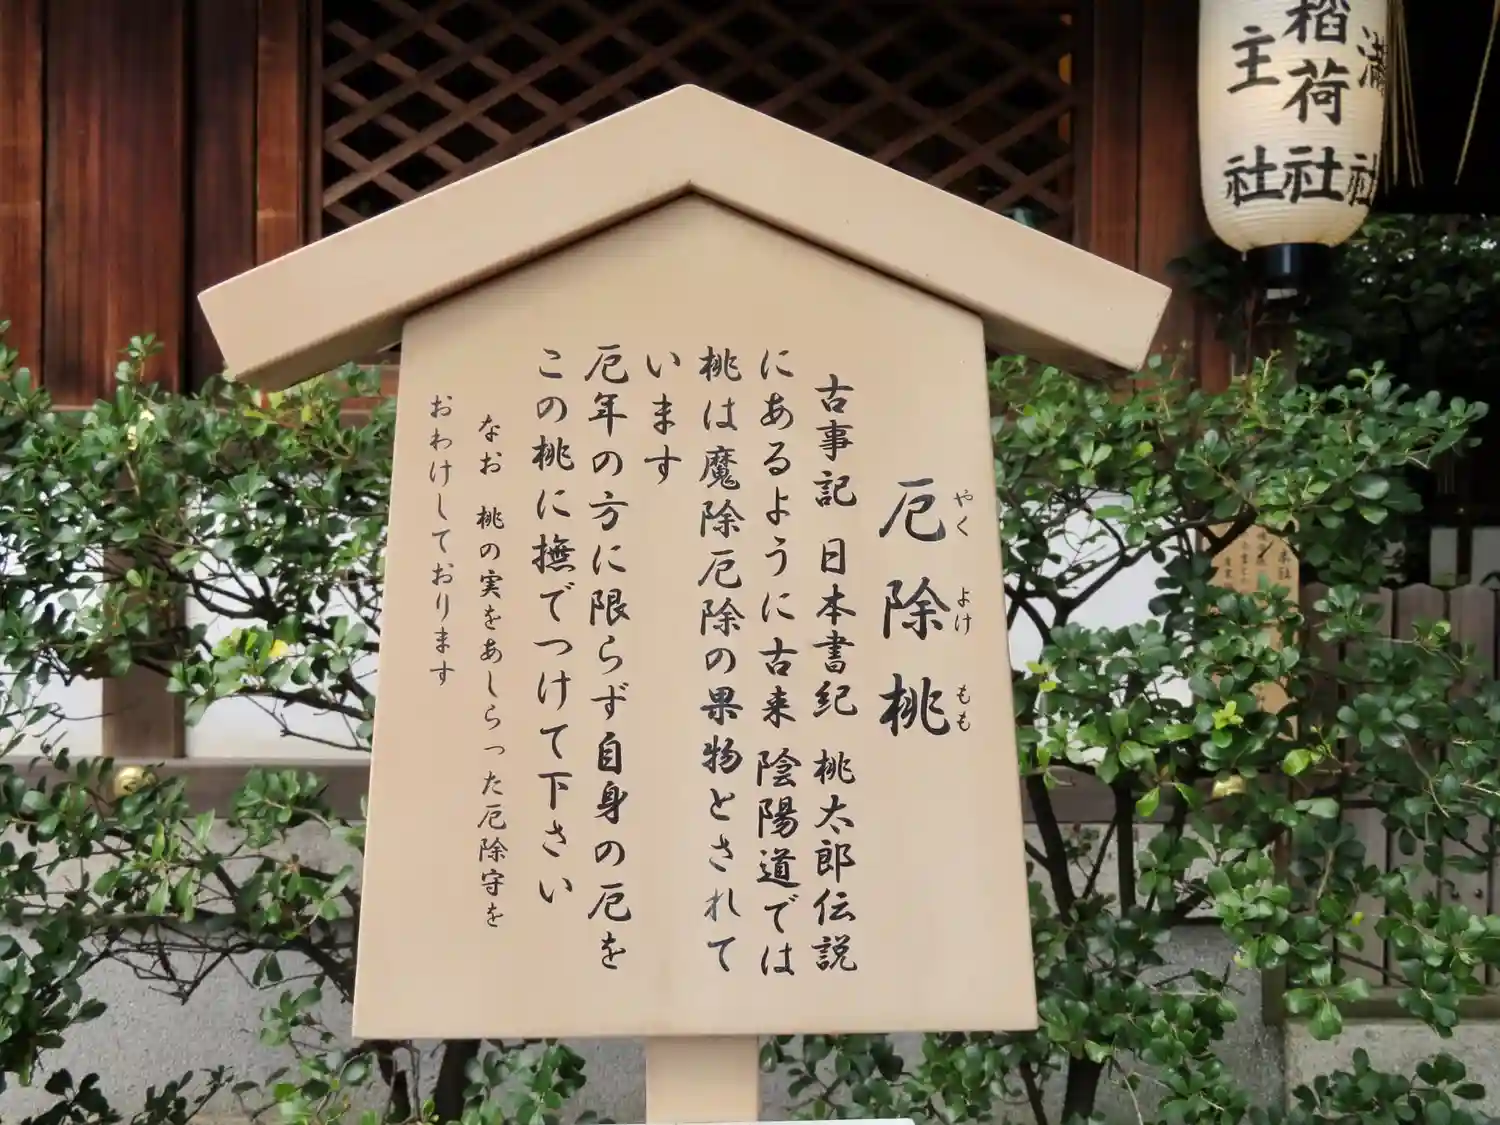 厄除桃
やく よけ もも
古事記 日本書紀 桃太郎伝説
にあるように古来 陰陽道では
桃は魔除厄除の果物とされて
います
厄年の方に限らず自身の厄を
この桃に撫でつけて下さい
なお 桃の実をあしらった厄除守を
おわけしております
稲荷社
主社
社
本社